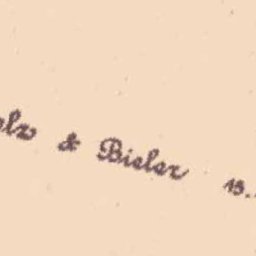 elz & Bieler 15.